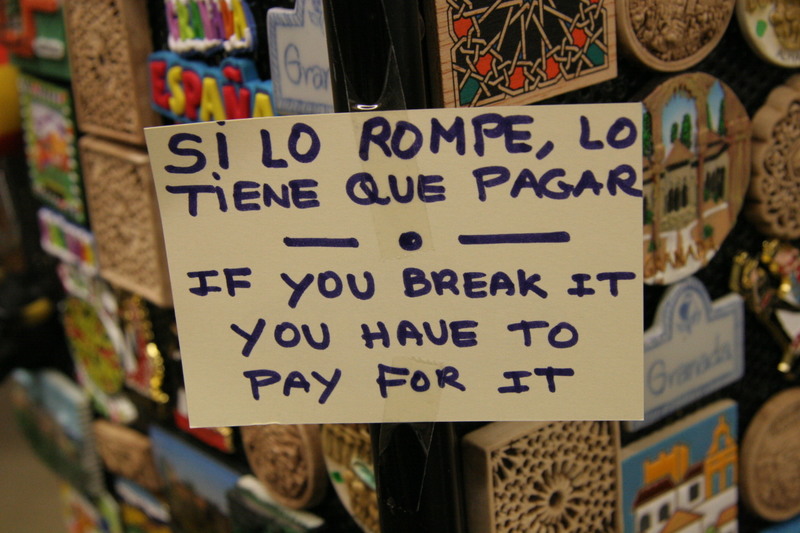 ESPAÑA
Gran
SÍ LO ROMPE, LO
TIENE QUE PAGAR
— • —
IF YOU BREAK IT
YOU HAVE TO
PAY FOR IT
Granada